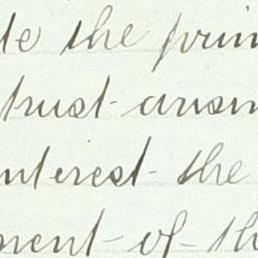 te the prin
trust arisin
nterest the
ment of th